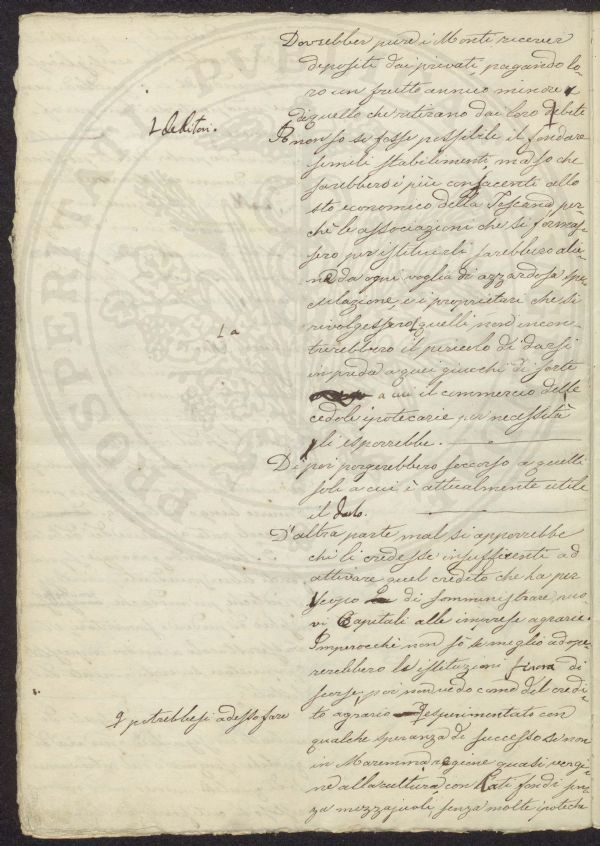 Dovrebber pure i Monti ricever
depositi dai privati, pagando lo-
ro un frutto annico minore
di quello che ritirano dai loro debiti
⌊ debitori.
Io non so se fosse possibile il fondare
simili stabilimenti, ma so che
sarebbero i più confacenti allo
sto economico della Toscana per-
chè le associazioni che si formas-
sero per istituirli sarebbero alie-
ne da ogni voglia di azzardosa spe-
culazione, e i proprietari che si
rivolgessero quelli non incon-
⌊ a
trerebbero il pericolo di darsi
in preda a quei giuochi di sorte
a cui il commercio delle
cedole ipotecarie per necessità
li esporrebbe.
Di poi porgerebbero soccorso a quelli
soli a cui è attualmente utile
il darlo.
D'altra parte mal si apporrebbe
chi li credesse insufficenti ad
attivare quel credito che ha per
iscopo di somministrare nuo-
vi Capitali alle imprese agrarie.
Imperocchè non sò se meglio adope-
rerebbero le istituzioni finora di-
scorse, poi non vedo come del credi-
to agrario esperimentato con
potrebbesi adesso fare
qualche speranza di successo se non
in Maremma regione quasi vergi-
ne alla cultura con lati fondi sen-
za mezzajuoli, senza molte ipoteche
PVBLI